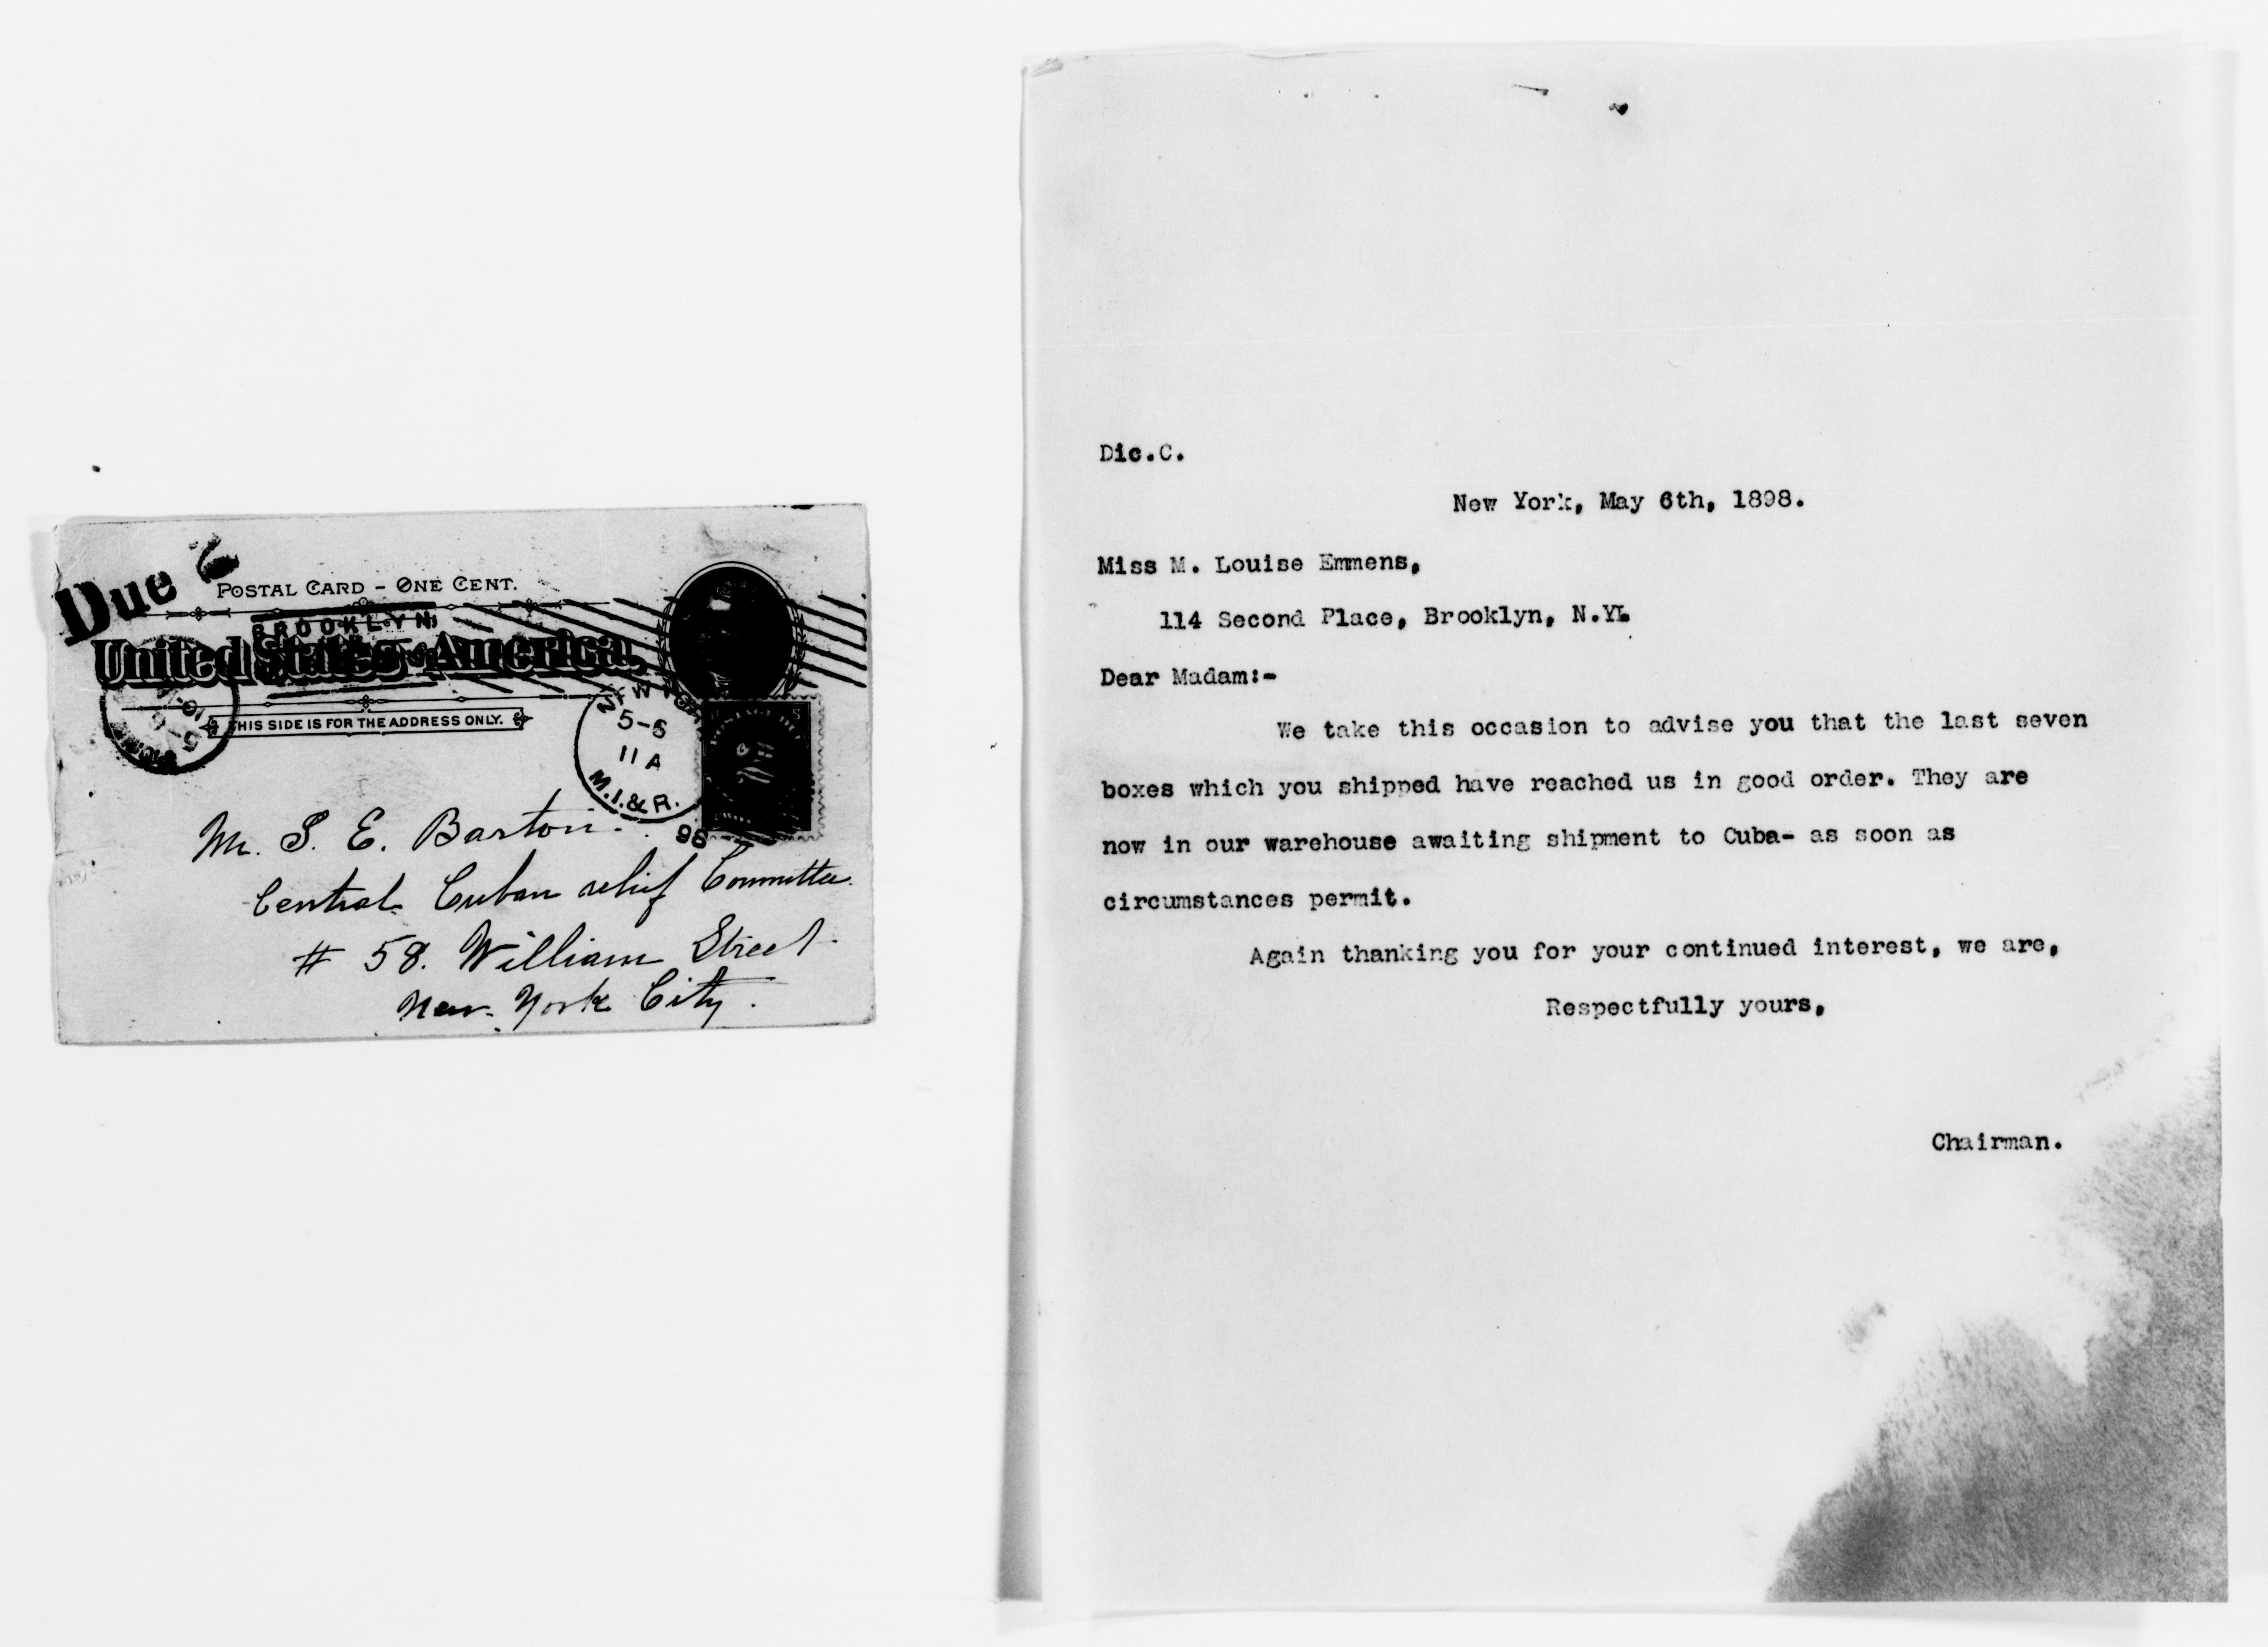 Due 2
POSTAL CARD – ONE CENT.
BROOKLYN
United States of America.
THIS SIDE IS FOR THE ADDRESS ONLY.
5-6
11 A
M.I.&R.
98
Mr. S. E. Barton.
Central Cuban relief Committee.
# 58. William Street.
New York City.
Dic.C.
New York, May 6th, 1898.
Miss M. Louise Emmens,
114 Second Place, Brooklyn, N.Y.
Dear Madam:-
We take this occasion to advise you that the last seven
boxes which you shipped have reached us in good order. They are
now in our warehouse awaiting shipment to Cuba- as soon as
circumstances permit.
Again thanking you for your continued interest, we are,
Respectfully yours,
Chairman.